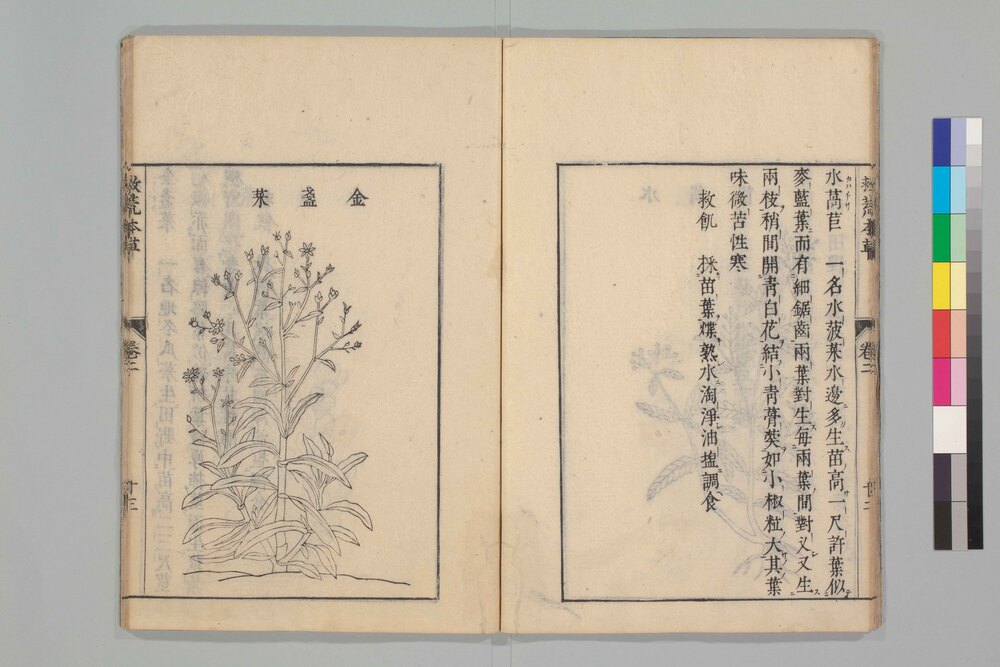 水萵苣 一名水菠菜水邊多生苗高一尺許葉似
麥藍葉而有細鋸齒兩葉對生每兩葉間對叉又生
兩枝稍間開青白花結小青蓇葖如小椒粒大其葉
味微苦性寒
救飢 採苗葉煠熟水淘淨油塩調食
金盞菜
救荒本草
卷二
十三